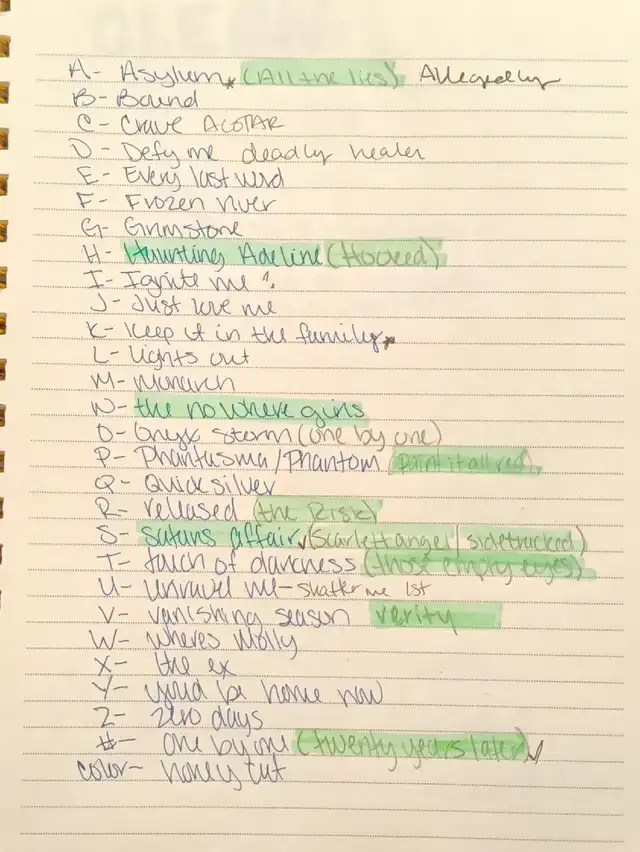 A- Asylum* (All the lies) Allegedly
B- Bound
C- Crave ACOTAR
D- Defy me deadly healer
E- Every last word
F- Frozen river
G- Grimstone
H- Haunting Adeline (Hooked)
I- Ignite me
J- Just love me
K- Keep it in the family*
L- Lights out
M- Monarch
N- the nowhere girls
O- Onyx storm (one by one)
P- Phantasma/Phantom (paint it all red)
Q- Quicksilver
R- released (the Risk)
S- Satans affair✓ (Scarlett angel | sidetracked)
T- touch of darkness (those empty eyes)
U- unravel me - shatter me 1st
V- vanishing season verity
W- Wheres Molly
X- the ex
Y- youd be home now
Z- zero days
#- one by one (twenty years later)✓
color- honey cut